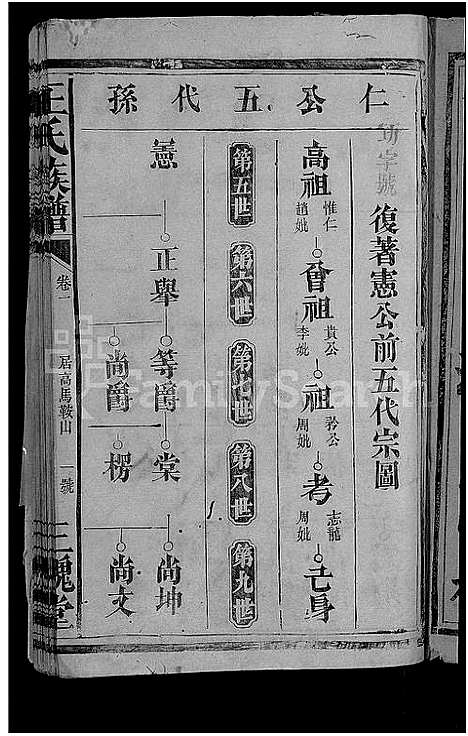 仁公五代孫
功字號
復著憲公前五代宗圖
高祖 惟仁 趙妣
曾祖 貴公 李妣
祖 公 周妣
考 志龍 周妣
己身
第五世 第六世 第七世 第八世 第九世
憲 正舉 等爵 棠 尚坤
尚爵 楞 尚文
王氏族譜 卷一 居高馬鞍山 一號 三槐堂
FamilySearch